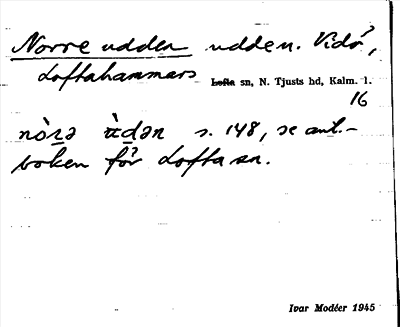 Norre udden udden. Vidö,
Loftahammars Lofta sn, N. Tjusts hd, Kalm. l.
16
nòrə ùdən s. 148, se ant.-
boken för Lofta sn.
Ivar Modéer 1945